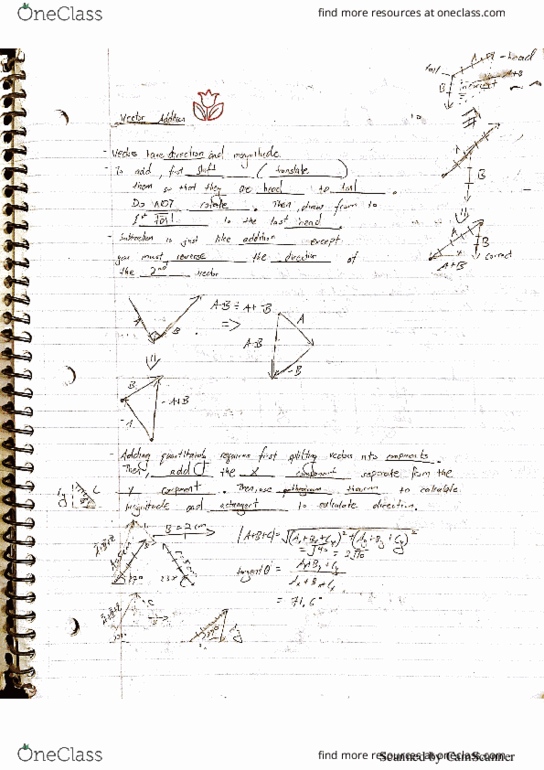 OneClass
find more resources at oneclass.com
Vector Addition
head
A+B
B
A
B
A
B
A+B
correct
- Vectors have direction and magnitude.
To add, first shift (translate)
them so that they are head to tail.
Do NOT rotate. Then, draw from to
1st tail to the last head.
- Subtraction is just like addition except
you must reverse the direction of
the 2nd vector
A-B = A+-B
=>
A
B
A-B
A
-B
B
-A+B
-A
- Adding quantitatively requires first splitting vectors into components.
Then, add the x component separate from the
y component. Then, use pythagorean theorem to calculate
magnitude and arctangent to calculate direction.
B = 2cm
|A+B+C| =
= √40 = 2√10
tangent θ =
= 71.6°
OneClass
find more resources at oneclass.com
Scanned by CamScanner